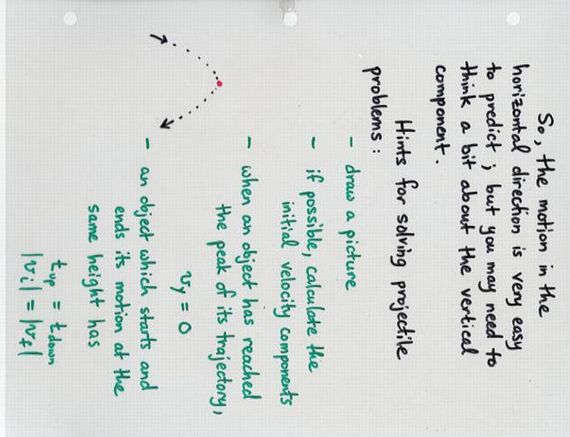 So, the motion in the
horizontal direction is very easy
to predict; but you may need to
think a bit about the vertical
component.
Hints for solving projectile
problems:
- draw a picture
- if possible, calculate the
initial velocity components
- when an object has reached
the peak of its trajectory,
vy = 0
- an object which starts and
ends its motion at the
same height has
tup = tdown
|vi| = |vf|